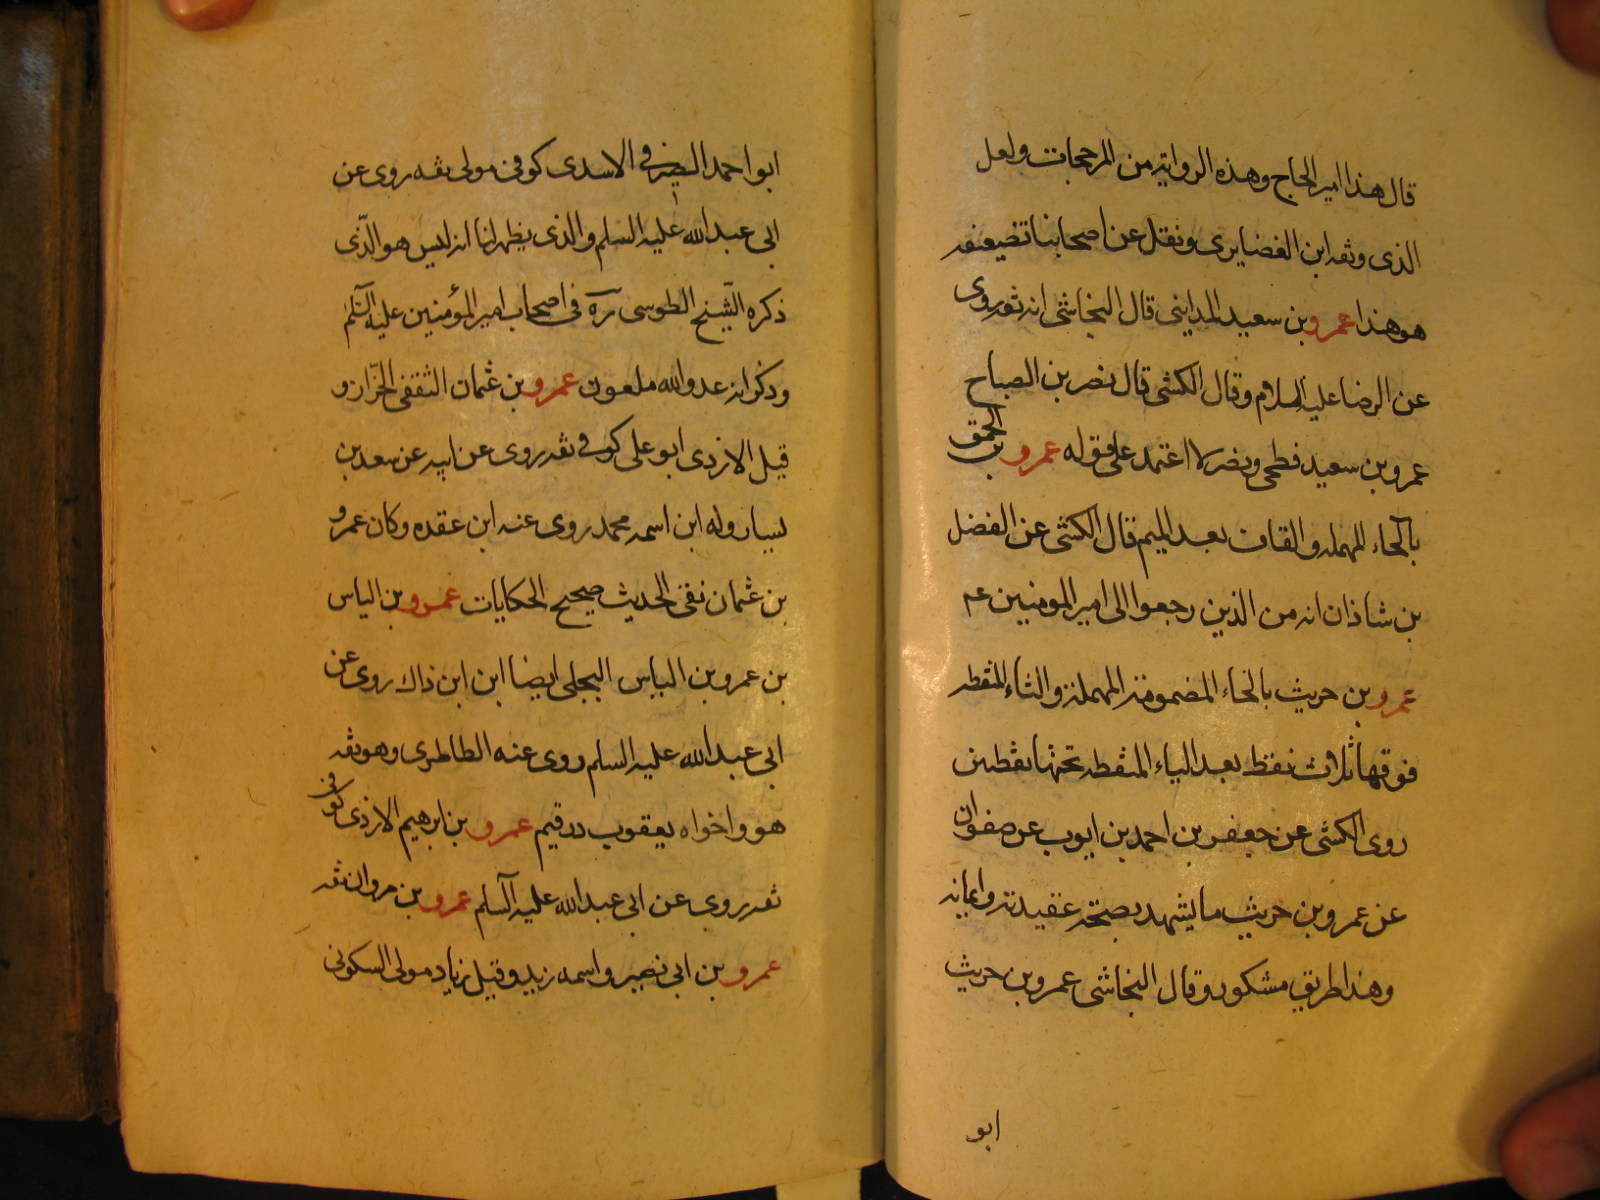 قال هذا امير الحاج وهذه الرواية من المرجحات ولعل
الذى وثقه ابن الغضايرى ونقل عن اصحابنا تضعيفه
هو هذا عمرو بن سعيد المداينى قال النجاشى انه ثقه روى
عن الرضا عليه السلام وقال الكشى قال نصر بن الصباح
عمرو بن سعيد فطحى ونصر لا اعتمد على قوله عمرو بن الحمق
بالحاء المهمله والقاف بعد الميم قال الكشى عن الفضل
بن شاذان انه من الذين رجعوا الى امير المومنين عم
عمرو بن حريث بالحاء المضمومة المهملة والثاء المنقطه
فوقها ثلاث نقط بعد الياء المنقطه تحتها نقطين
روى الكشى عن جعفر بن احمد بن ايوب عن صفوان
عن عمرو بن حريث ما يشهد بصحة عقيدته وايمانه
وهذا طريق مشكور وقال النجاشى عمرو بن حريث
ابو
ابو احمد الصيرفى الاسدى كوفى مولى ثقه روى عن
ابى عبد الله عليه السلم والذى يظهر لنا انه ليس هو الذّى
ذكره الشّيخ الطوسى ره فى اصحاب امير المؤمنين عليه السّلم
وذكر انه عدو الله ملعون عمرو بن عثمان الثقفى الخزّاز و
قيل الازدى ابو على كوفى ثقه روى عن ابيه عن سعد بن
يسار وله ابن اسمه محمد روى عنه ابن عقده وكان عمرو
بن عثمان نقى الحديث صحيح الحكايات عمرو بن الياس
بن عمرو بن الياس البجلى ايضا ابن ابن ذاك روى عن
ابى عبد الله عليه السلم روى عنه الطاطرى وهو ثقه
هو واخواه يعقوب ورقيم عمرو بن ابرهيم الازدى كوفى
ثقه روى عن ابى عبد الله عليه السلم عمرو بن مروان ثقه
عمرو بن ابى نصر واسمه زيد وقيل زياد مولى السكونى